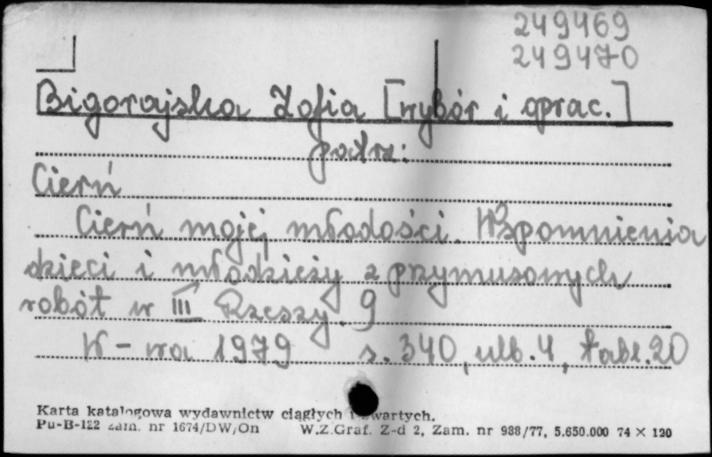 249469
249470
Bigorajska Zofia [wybór i oprac.]
patrz:
Cierń
Cierń mojej młodości. Wspomnienia
dzieci i młodzieży z przymusowych
robót w III Rzeszy.
W-wa 1979 s. 340, ulb. 4, tabl. 20
Karta katalogowa wydawnictw ciągłych i zwartych.
Pu-B-122 zam. nr 1674/DW/On W.Z.Graf. Z-d 2, Zam. nr 988/77, 5.650.000 74 × 120